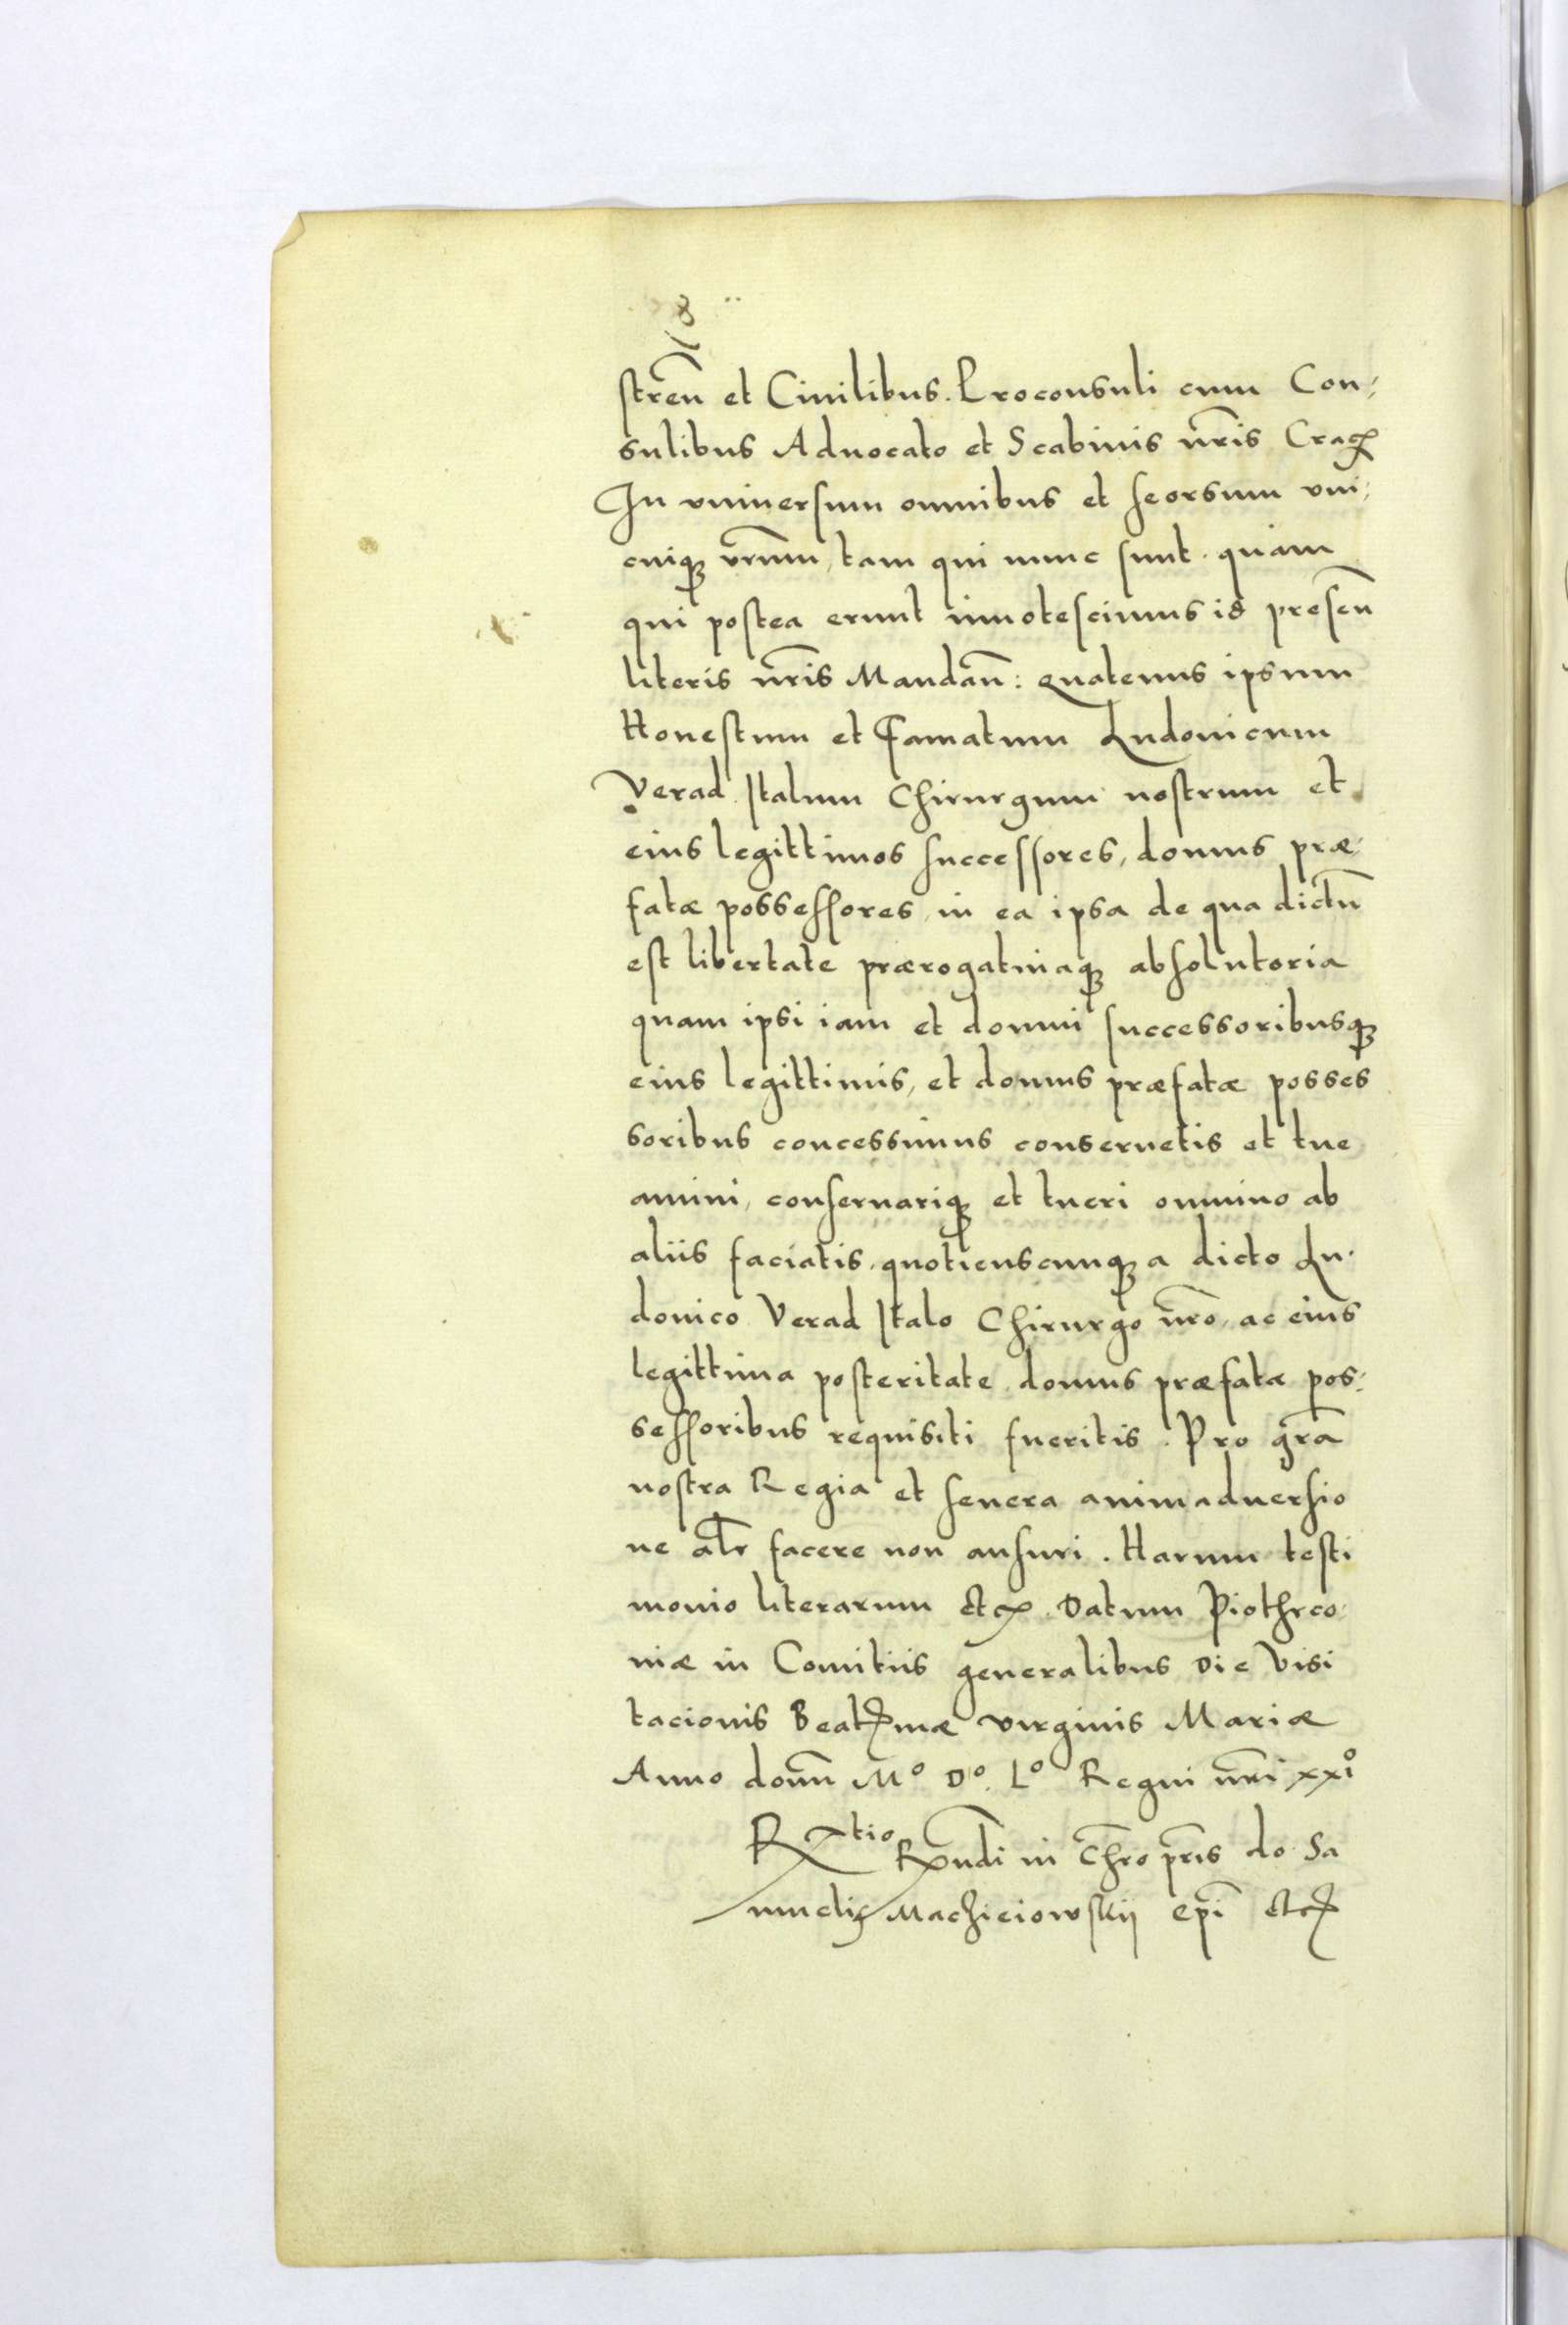 streñ et Ciuilibus. Proconsuli cum Con:
sulibus Aduocato et Scabinis nr̃is Crac̃
In vniuersum omnibus et seorsum vni:
cuiq; vr̃um, tam qui nunc sunt. quàm
qui postea erunt innotescimus id preseñ
literis nr̃is Mandañ: quatenus ipsum
Honestum et Famatum Ludouicum
Verad Italum Chirurgum nostrum et
eius legittimos successores, domus præ:
fatæ possessores, in ea ipsa de qua dictũ
est libertate prærogatiuaq; absolutoria
quam ipsi iam et domui successoribusq;
eius legittimis, et domus præfatæ posses
soribus concessimus conseruetis et tue
amini, conseruariq; et tueri omnino ab
aliis faciatis, quotienscunq; a dicto Lu.
douico Verad Italo Chirurgo nr̃o, ac eius
legittima posteritate domus præfatæ pos:
sessoribus requisiti fueritis. Pro gr̃a
nostra Regia et seuera animaduersio
ne alr̃ facere non ausuri. Harum testi
monio literarum etc. Datum Piothrco:
niæ in Comitiis generalibus die Visi
tacionis Beatmæ virginis Mariæ
Anno domñ Mº Dº. Lº Regni nr̃i xxiº
Rtio Rũdi in Chr̃o pr̃is do. Sa
muelis Machieiowskij ep̃i etc